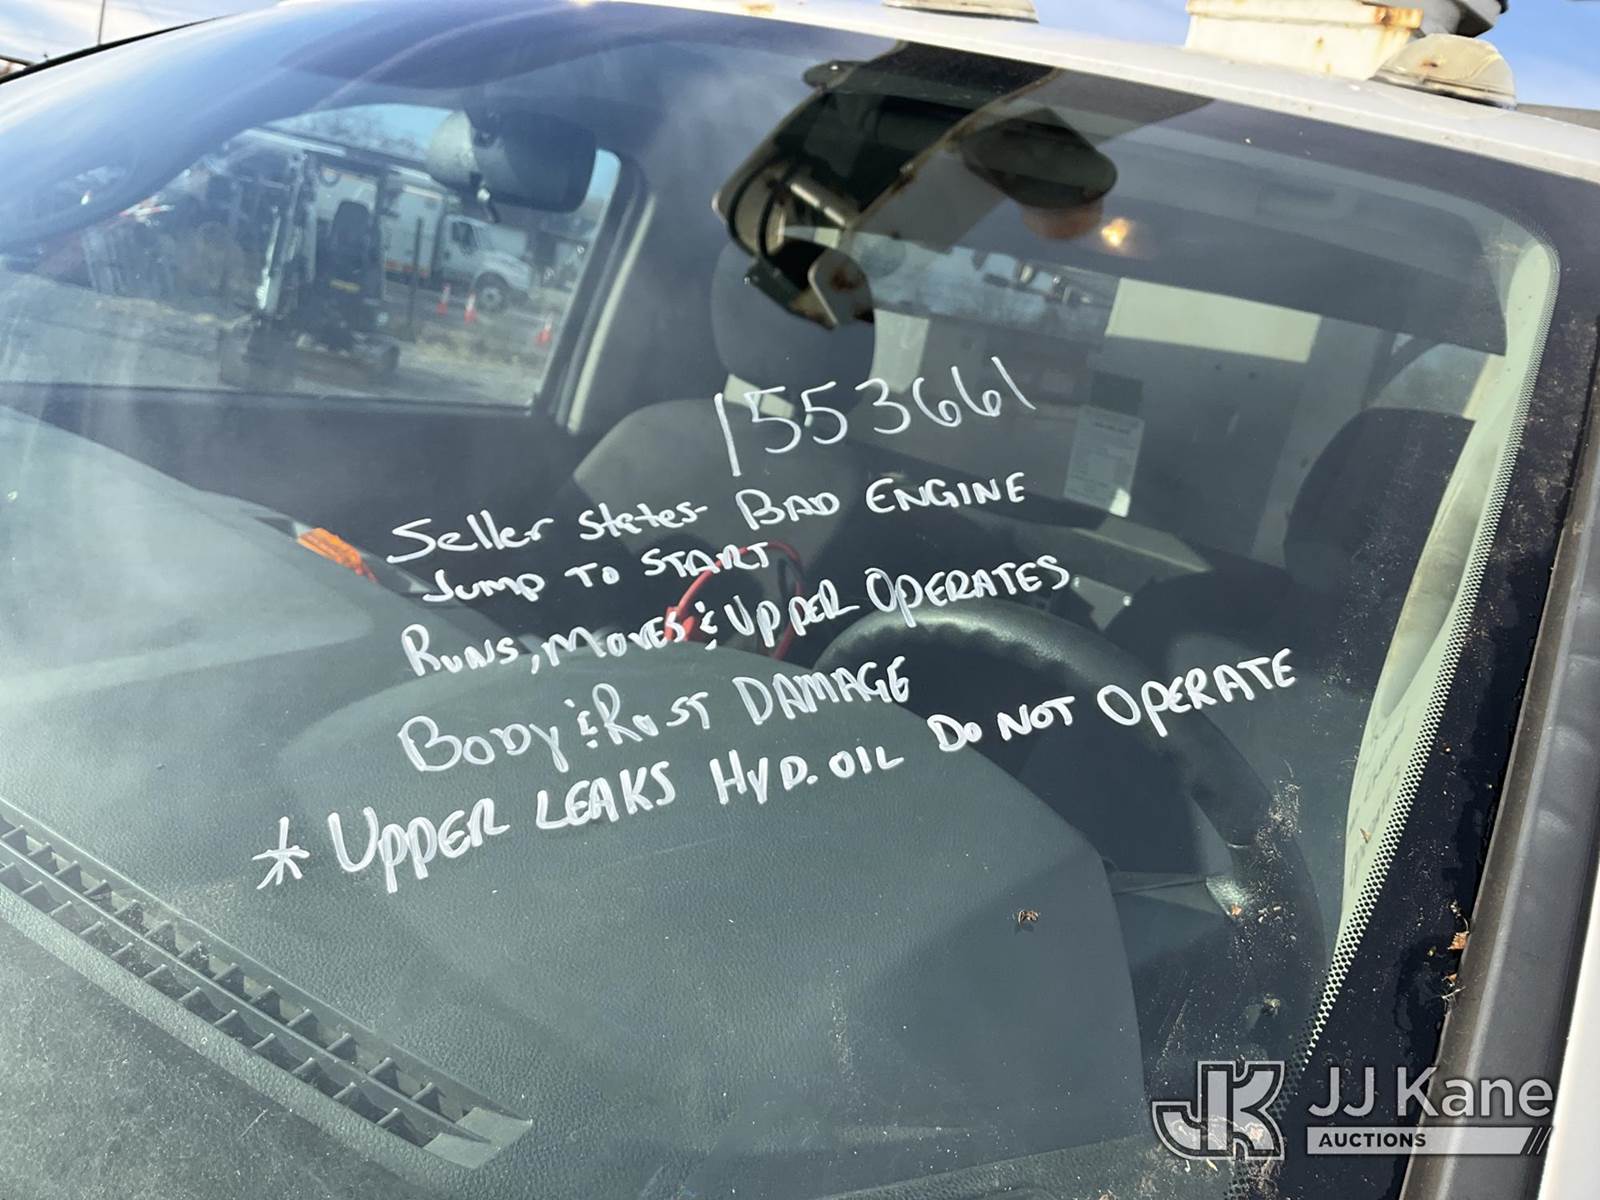 1553661
Seller States- BAD ENGINE
Jump To START
RUNS, MOVES & UPPER OPERATES.
BODY & RUST DAMAGE
* UPPER LEAKS HYD. OIL DO NOT OPERATE
JK JJ Kane
AUCTIONS